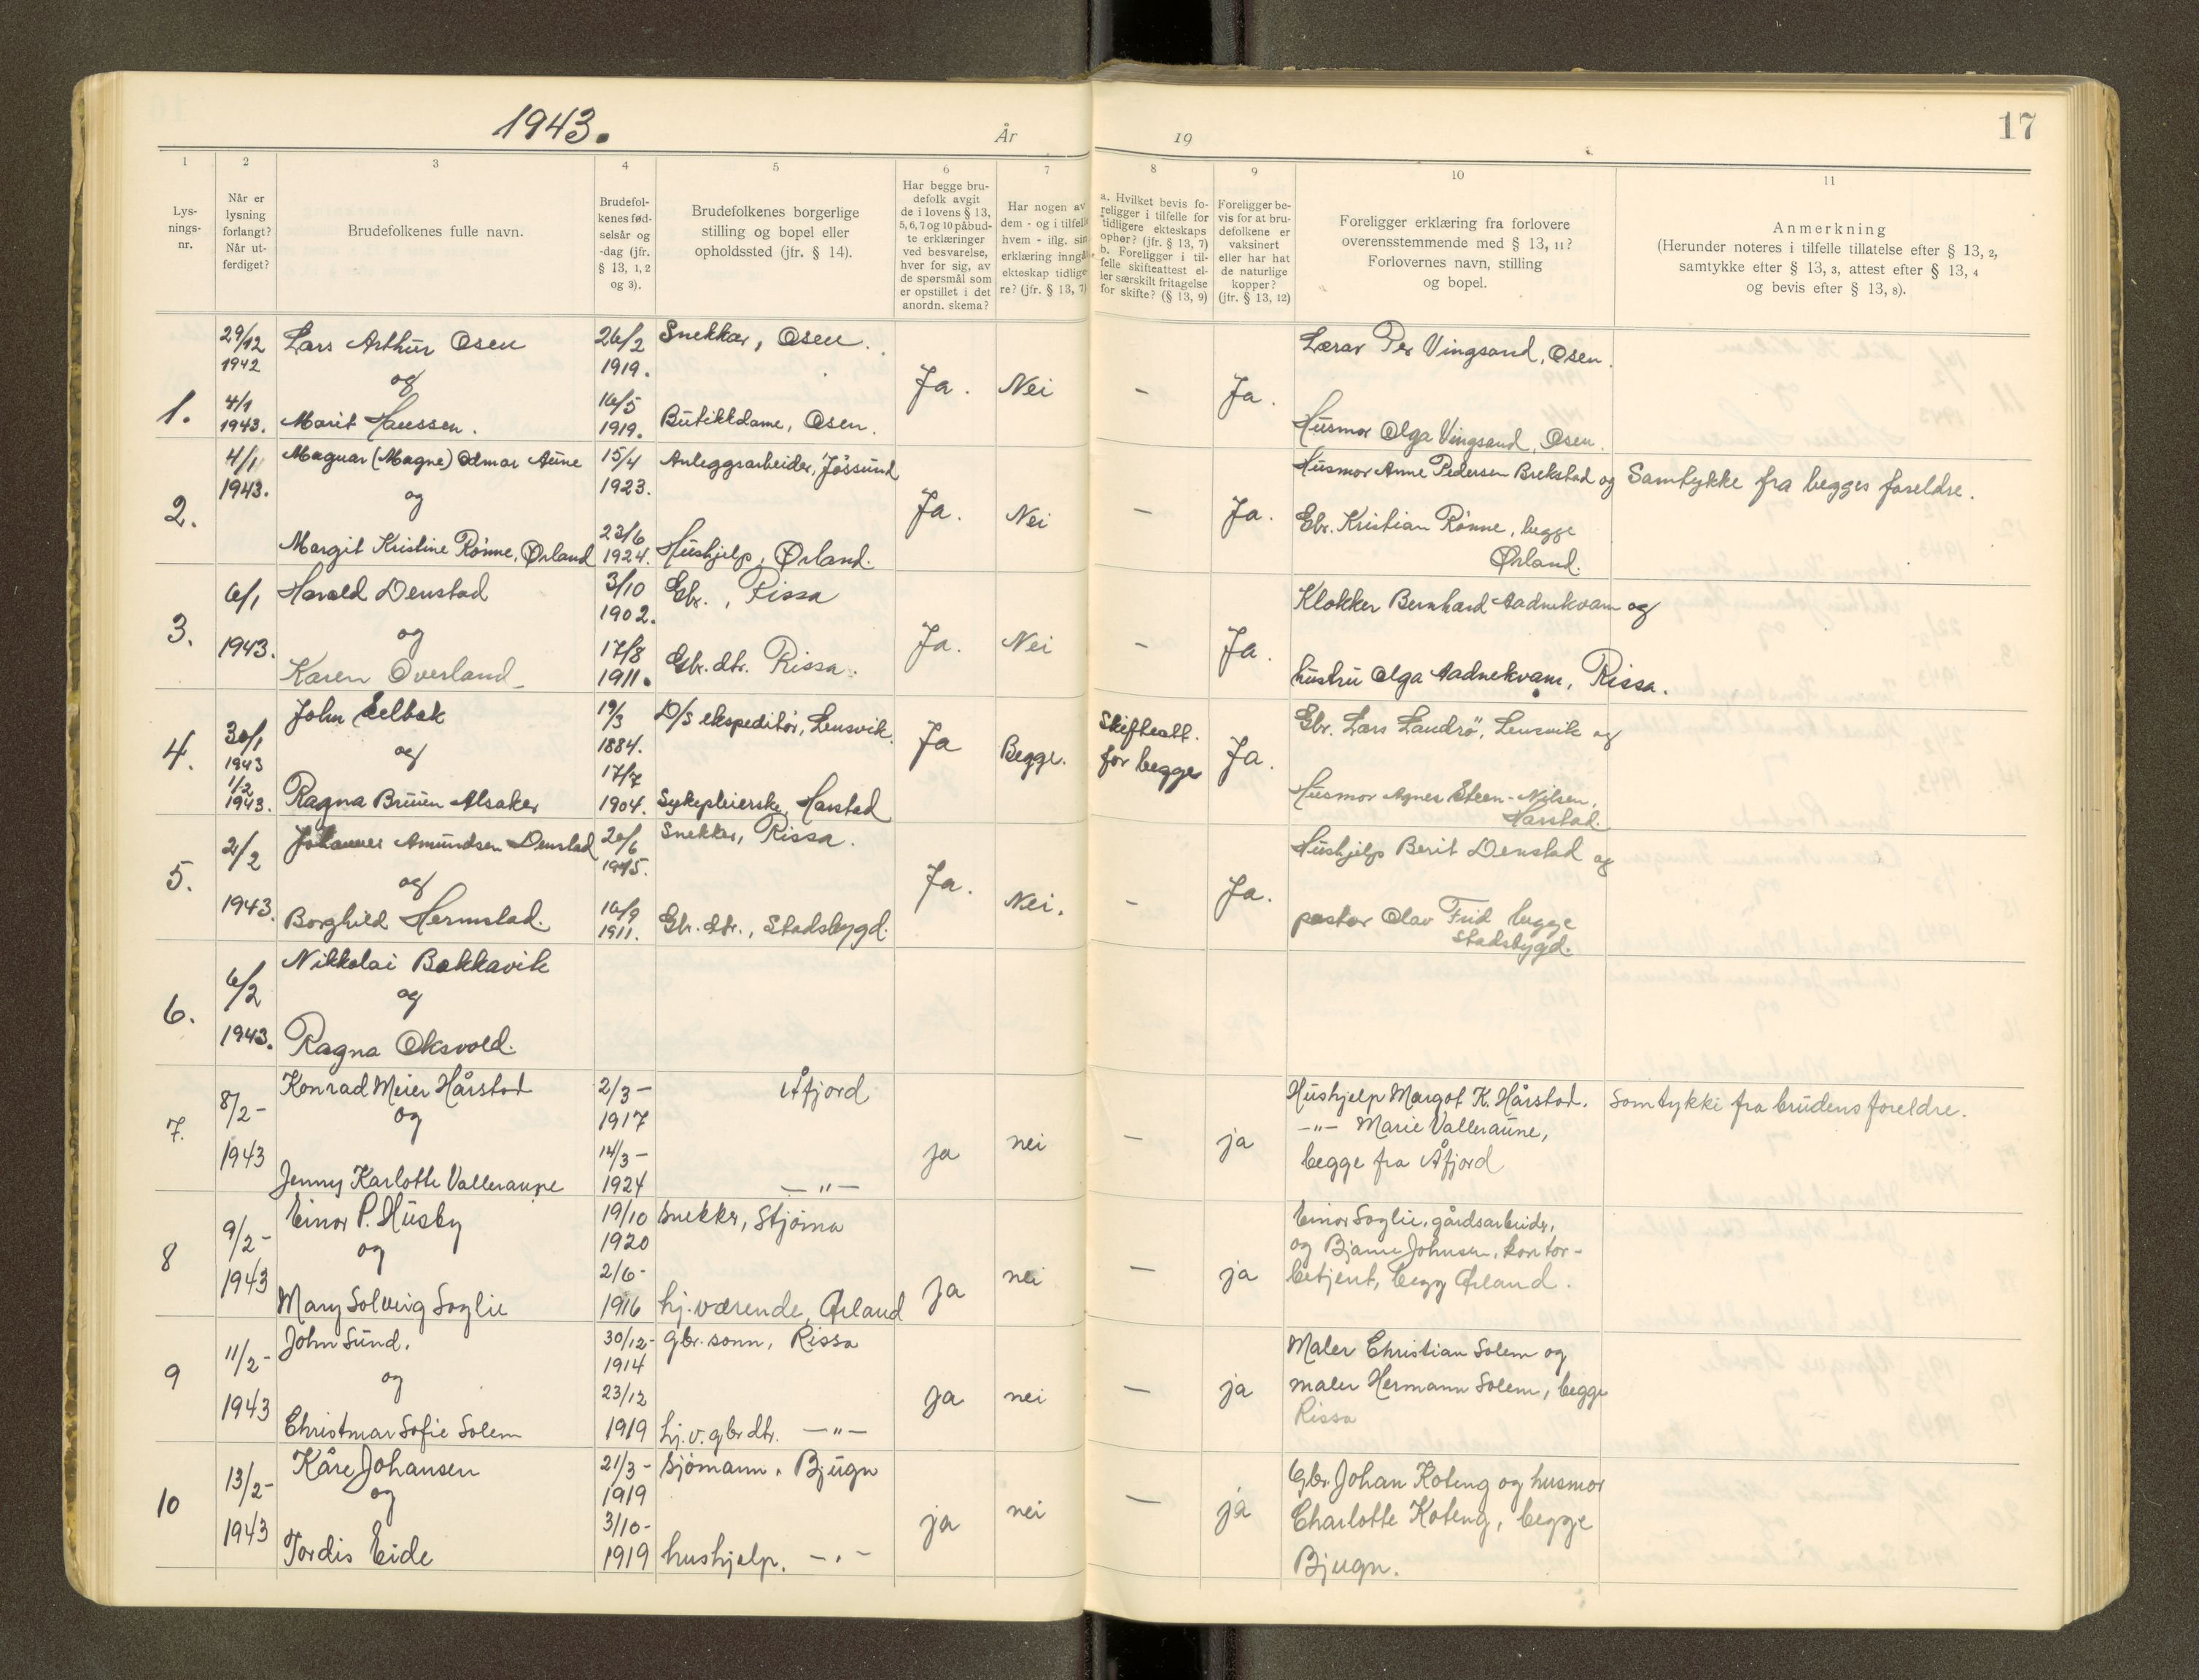 1943.
År
19
17
1
Lys-
nings-
nr.
2
Når er
lysning
forlangt?
Når ut-
ferdiget?
3
Brudefolkenes fulle navn.
4
Brudefol-
kenes fød-
selsår og
-dag (jfr.
§ 13, 1, 2
og 3).
5
Brudefolkenes borgerlige
stilling og bopel eller
opholdssted (jfr. § 14).
6
Har begge bru-
defolk avgit
de i lovens § 13,
5, 6, 7 og 10 påbud-
te erklæringer
ved besvarelse,
hver for sig, av
de spørsmål som
er opstillet i det
anordn. skema?
7
Har nogen av
dem - og i tilfelle
hvem - iflg. sin
erklæring inngått
ekteskap tidlige-
re? (jfr. § 13, 7)
8
a. Hvilket bevis fo-
religger i tilfelle for
tidligere ekteskaps
ophør? (jfr. § 13, 7)
b. Foreligger i til-
felle skifteattest el-
ler særskilt fritagelse
for skifte? (§ 13, 9)
9
Foreligger be-
vis for at bru-
defolkene er
vaksinert
eller har hat
de naturlige
kopper?
(jfr. § 13, 12)
10
Foreligger erklæring fra forlovere
overensstemmende med § 13, 11?
Forlovernes navn, stilling
og bopel.
11
Anmerkning
(Herunder noteres i tilfelle tillatelse efter § 13, 2,
samtykke efter § 13, 3, attest efter § 13, 4
og bevis efter § 13, 8).
1.
29/12
1942
4/1
1943.
Lars Arthur Osen
og
Marit Hanssen.
26/2
1919.
16/5
1919.
Snekkar, Osen.
Butikkdame, Osen.
Ja.
Nei
-
Ja.
Lærar Per Vingsand, Osen.
Husmor Olga Vingsand, Osen.
2.
4/1
1943.
Magnar (Magne) Odmar Aune
og
Margit Kristine Rønne, Ørland
15/4
1923.
23/6
1924.
Anleggsarbeider, Jøssund
Hushjelp, Ørland.
Ja.
Nei
-
Ja.
Husmor Anne Pedersen Brekstad og
Gbr. Kristian Rønne, begge
Ørland.
Samtykke fra begges foreldre.
3.
6/1
1943.
Harald Denstad
og
Karen Overland
3/10
1902.
17/8
1911.
Gbr., Rissa
Gbr. dtr. Rissa.
Ja.
Nei
-
Ja.
Klokker Bernhard Aadnekvam og
hustru Olga Aadnekvam, Rissa.
4.
30/1
1943
1/2
1943.
John Selbek
og
Ragna Bruun Alsaker
19/3
1884.
17/7
1904.
D/S ekspeditør, Lensvik.
Sykepleierske, Harstad
Ja
Begge.
Skifteatt.
for begge
Ja.
Gbr. Lars Landrø, Lensvik og
Husmor Agnes Steen-Nilsen,
Harstad.
5.
2/2
1943.
Johannes Amundsen Denstad
og
Borghild Hermstad.
20/6
1915.
16/9
1911.
Snekker, Rissa.
Gbr. dtr., Stadsbygd.
Ja.
Nei.
-
Ja.
Hushjelp Berit Denstad og
pastor Olav Frid begge
Stadsbygd.
6.
6/2
1943.
Nikkolai Bakkavik
og
Ragna Oksvold.
7.
8/2-
1943
Konrad Meier Hårstad
og
Jenny Karlotte Valleraune
2/3-
1917
14/3-
1924
Åfjord
-"-
ja
nei
-
ja
Hushjelp Margot K. Hårstad.
-"- Marie Valleraune,
begge fra Åfjord
Samtykki fra brudens foreldre.
8
9/2-
1943
Einar P. Husby
og
Mary Solveig Soglie
19/10
1920
2/6-
1916
Snekker, Stjørna
hj. værende, Ørland
ja
nei
-
ja
Einar Soglie, gårdsarbeider,
og Bjarne Johnsen, kontor-
betjent, begg Ørland.
9
11/2-
1943
John Sund.
og
Christmar Sofie Solem
30/12-
1914
23/12
1919
gbr. sønn, Rissa
hj. v. gbr dtr. -"-
ja
nei
-
ja
Maler Christian Solem og
maler Hermann Solem, begge
Rissa
10
13/2-
1943
Kåre Johansen
og
Tordis Eide
21/3-
1919
3/10-
1919
Sjømann, Bjugn
hushjelp. -"-
ja
nei
-
ja
Gbr. Johan Koteng og husmor
Charlotte Koteng, begge
Bjugn.